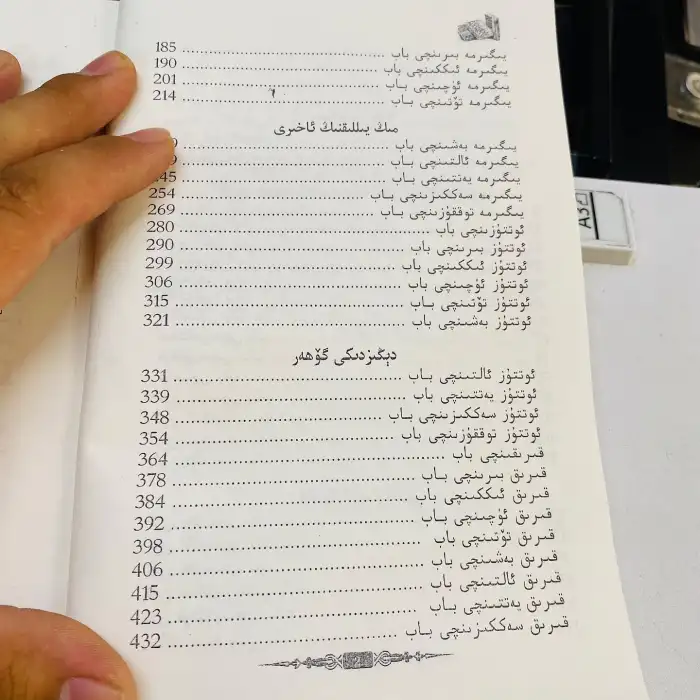 يىگىرمە بىرىنچى باب ........ 185
يىگىرمە ئىككىنچى باب ........ 190
يىگىرمە ئۈچىنچى باب ........ 201
يىگىرمە تۆتىنچى باب ........ 214
مىڭ يىللىقنىڭ ئاخىرى
يىگىرمە بەشىنچى باب ........
يىگىرمە ئالتىنچى باب ........
يىگىرمە يەتتىنچى باب ........ 245
يىگىرمە سەككىزىنچى باب ........ 254
يىگىرمە توققۇزىنچى باب ........ 269
ئوتتۇزىنچى باب ........ 280
ئوتتۇز بىرىنچى باب ........ 290
ئوتتۇز ئىككىنچى باب ........ 299
ئوتتۇز ئۈچىنچى باب ........ 306
ئوتتۇز تۆتىنچى باب ........ 315
ئوتتۇز بەشىنچى باب ........ 321
دېڭىزدىكى گۆھەر
ئوتتۇز ئالتىنچى باب ........ 331
ئوتتۇز يەتتىنچى باب ........ 339
ئوتتۇز سەككىزىنچى باب ........ 348
ئوتتۇز توققۇزىنچى باب ........ 354
قىرىقىنچى باب ........ 364
قىرىق بىرىنچى باب ........ 378
قىرىق ئىككىنچى باب ........ 384
قىرىق ئۈچىنچى باب ........ 392
قىرىق تۆتىنچى باب ........ 398
قىرىق بەشىنچى باب ........ 406
قىرىق ئالتىنچى باب ........ 415
قىرىق يەتتىنچى باب ........ 423
قىرىق سەككىزىنچى باب ........ 432
2